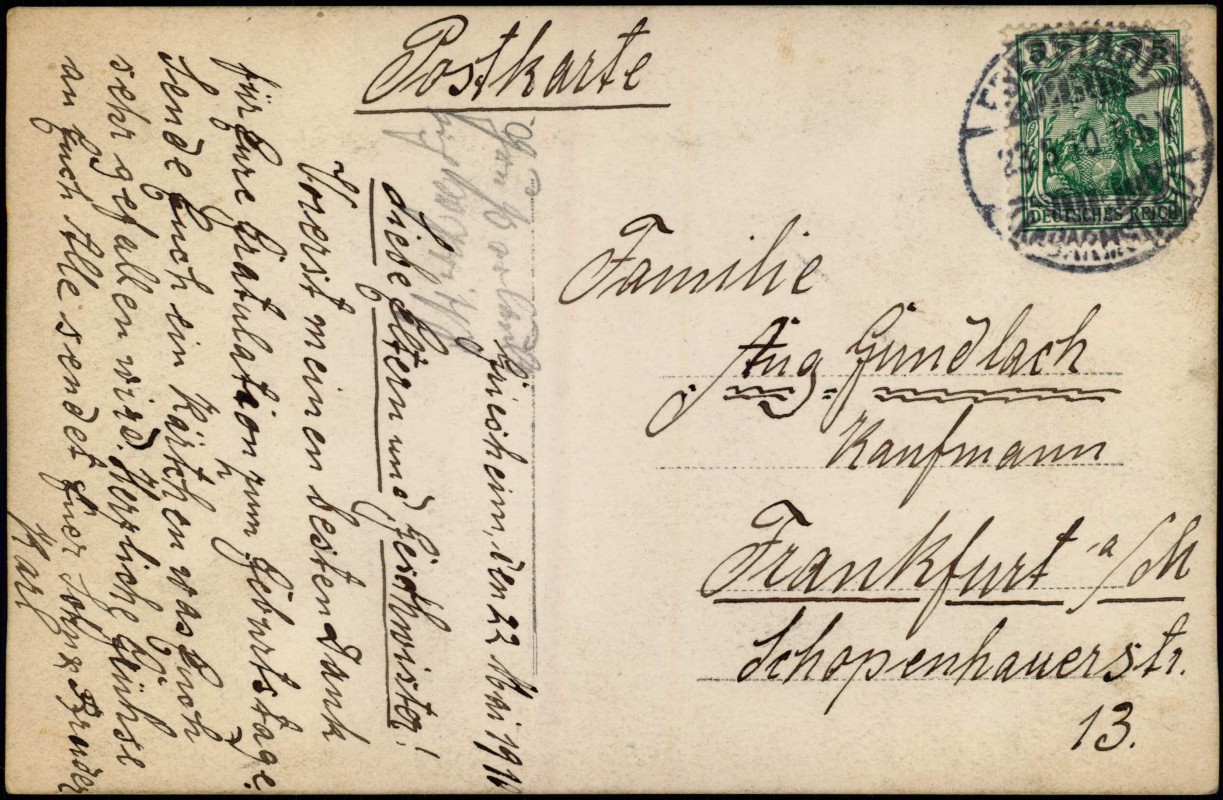 Postkarte
Griesheim, den 22 Mai 1910
Liebe Eltern und Geschwister!
Vorerst meinen besten Dank
für Eure Gratulation zum Geburtstage.
Sende Euch ein Kärtchen was Euch
sehr gefallen wird. Herzliche Grüße
an Euch Alle sendet Euer Sohn & Bruder
Karl
DEUTSCHES REICH
Familie
Aug. Gundlach
Kaufmann
Frankfurt a/M
Schopenhauerstr.
13.